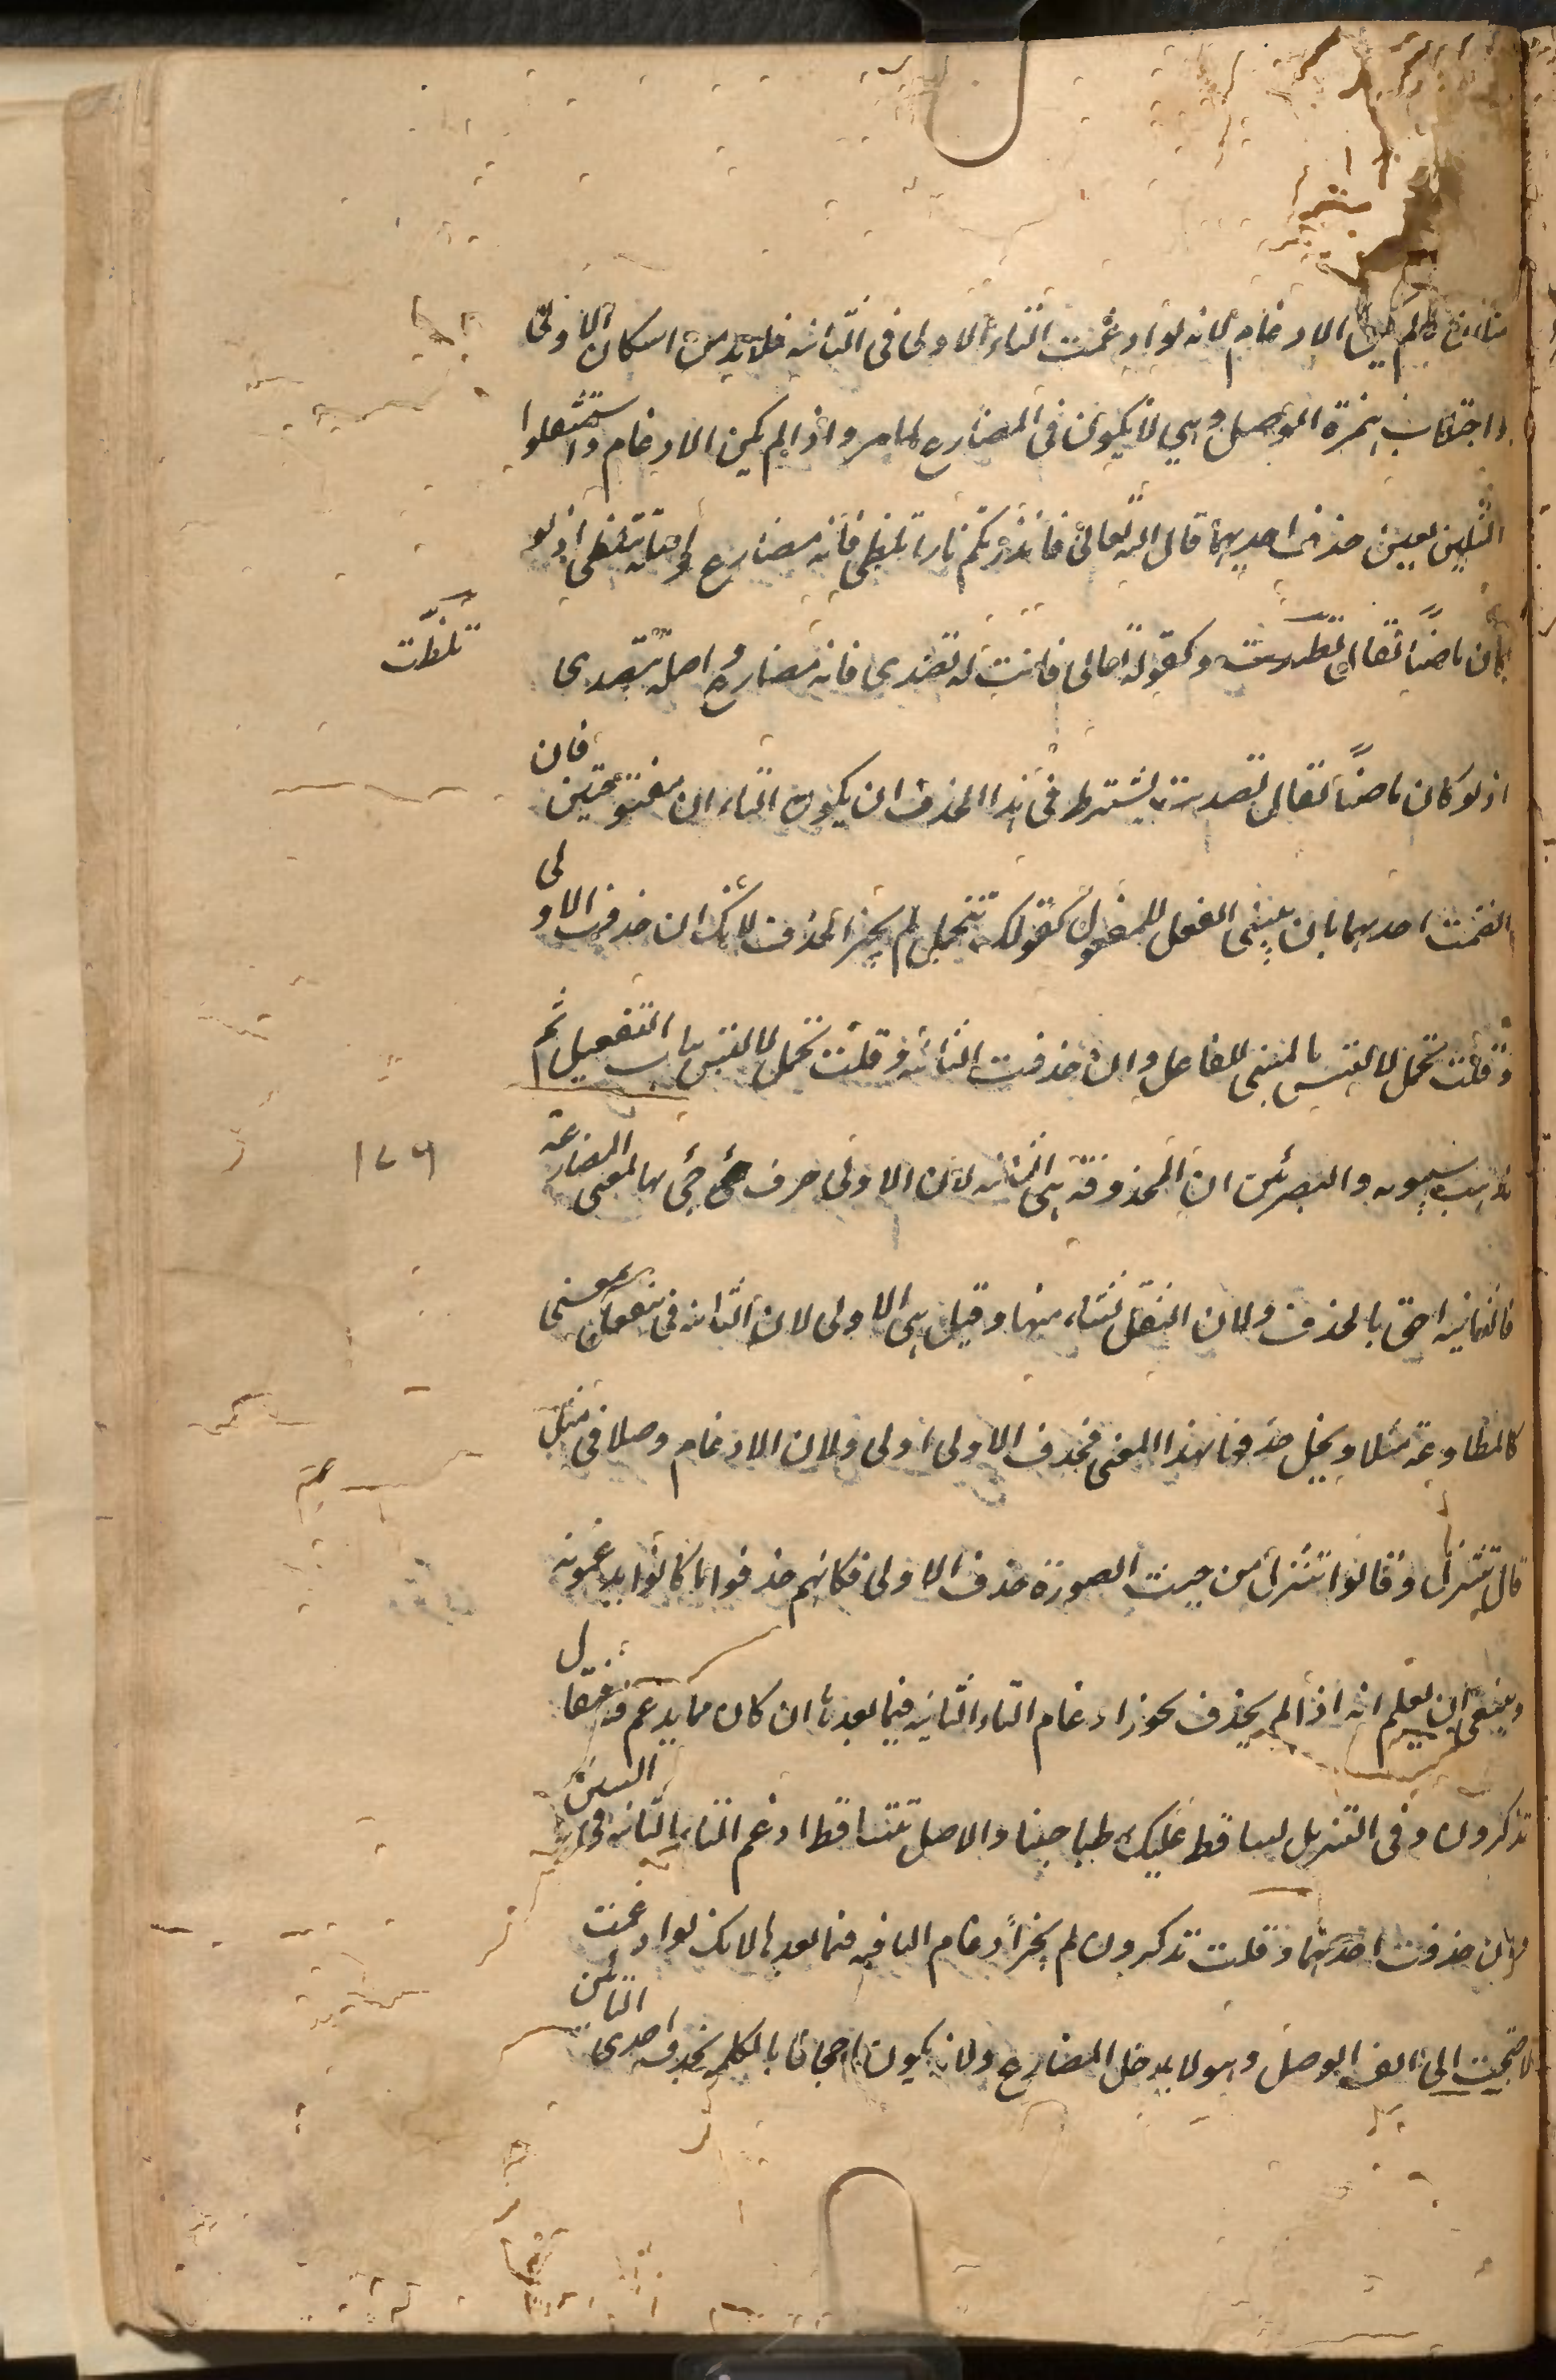 ولم يمكن الادغام لانه لو ادغمت التاء الاولى فى الثانيه فلابد من اسكان الاولى
واجتلاب همزة الوصل وهى لا يكون فى المضارع لما مر واذا لم يمكن الادغام واستثقلوا
المثلين تعين حذف احديهما قال الله تعالى فانذرتكم نارا تلظى فانه مضارع واصله تتلظى اذ لو
كان ماضيا لقال وكقوله تعالى فانت له تصدى فانه مضارع واصله تتصدى
تلظّت
اذ لو كان ماضيًا لقال تصديت ويشترط فى هذا الحذف ان يكون التاءان مفتوحتين فان
انضمت احديهما بان يبنى الفعل للمفعول كقولك تتحمل لم يجز الحذف لانك ان حذفت الاولى
وقلت تحمل لالتبس بالمبنى للفاعل وان حذفت الثانيه وقلت تحمل لالتبس بباب التفعيل ثم
مذهب سيبويه والبصرئين ان المحذوفة هى الثانيه لان الاولى حرف جئ بها لمعنى المضارعة
١٧٩
فالثانيه احق بالحذف ولان الثقل نشاء منها وقيل هى الاولى لان الثانيه فى تتفعل بمعنى
كالمطاوعة مثلا ويخل حذفها بهذا المعنى فحذف الاولى اولى ولان الادغام وصلا فى مثل
قال تنزل وقالوا تنزل من حيث الصورة حذف الاولى فكانهم حذفوا ما كانوا يدغمونه
وينبغى ان يعلم انه اذا لم يحذف يجوز ادغام التاء الثانيه فيما بعدها ان كان مما يدغم فيه فيقال
تذكرون وفى التنزيل تساقط عليك رطبا جنيا والاصل تتساقط ادغم التاء الثانيه فى السين
ولان حذفت احديهما وقلت تذكرون لم يجز ادغام الباقيه فيما بعدها لانك لو ادغمت
لاحتجت الى الف الوصل وهو لا يدخل المضارع ولانه يكون اجحافا بالكلمه بحذف احدى التائين